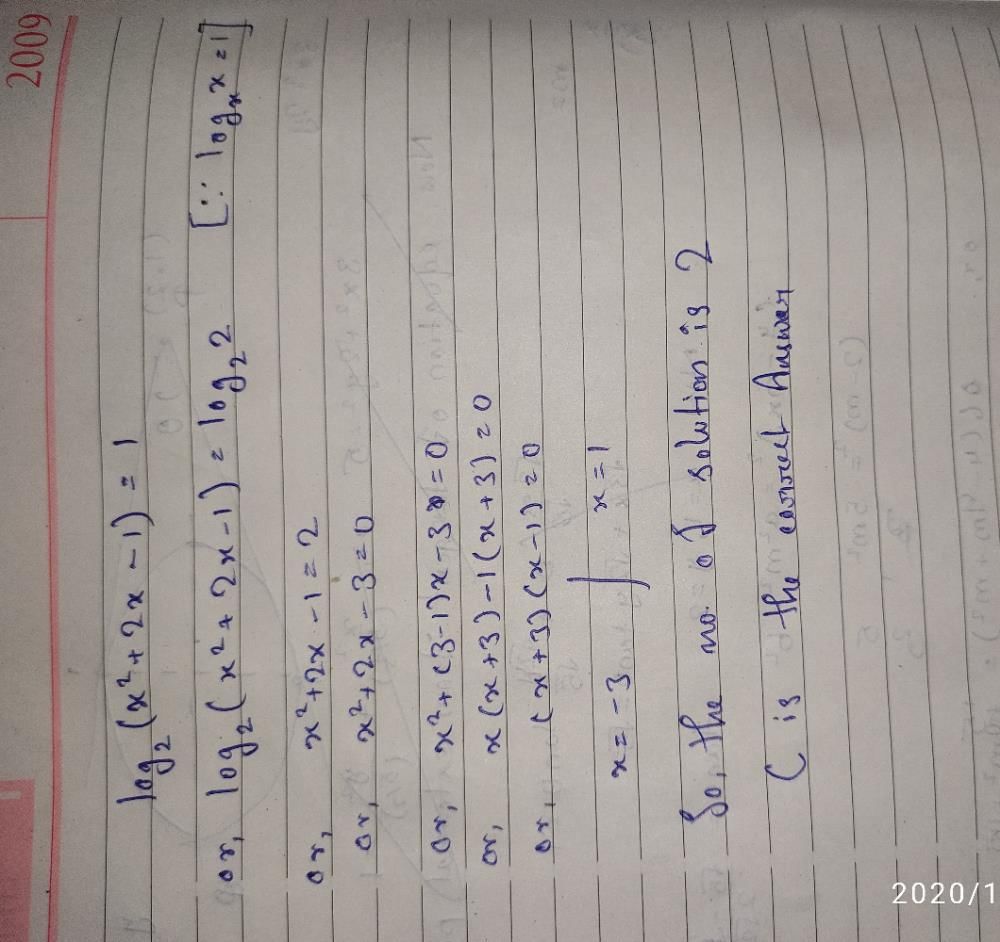 2009
log₂(x²+2x-1) = 1
or, log₂(x²+2x-1) = log₂2 [∵ logₓx=1]
or, x²+2x-1=2
or, x²+2x-3=0
or, x²+(3-1)x-3=0
or, x(x+3)-1(x+3)=0
or, (x+3)(x-1)=0
x=-3 | x=1
So, the no. of solution is 2
C is the correct Answer
2020/1